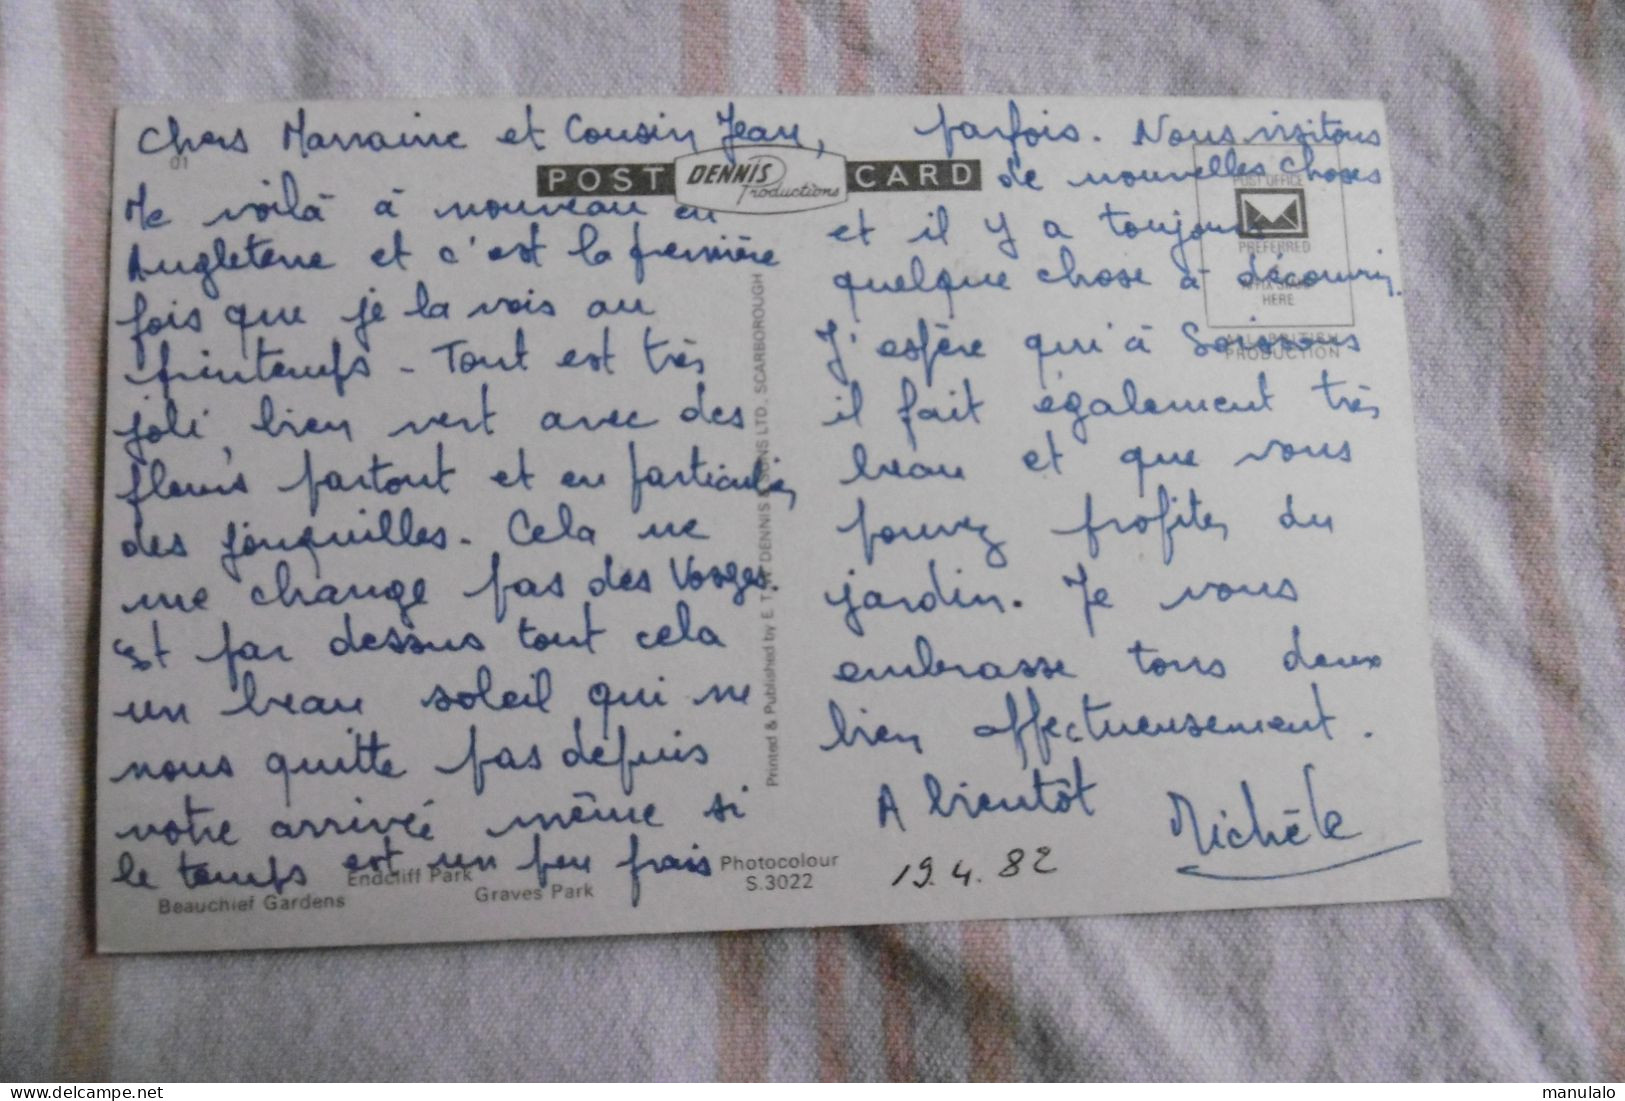 Chers Marraine et Cousin Jean,
01
POST DENNIS Productions CARD
Me voilà à nouveau en
Angleterre et c'est la première
fois que je la vois au
printemps - Tout est très
joli, bien vert avec des
fleurs partout et en particulier
des jonquilles. Cela ne
me change pas des Vosges.
Et par dessus tout cela
un beau soleil qui ne
nous quitte pas depuis
notre arrivée même si
le temps est un peu frais
Beauchief Gardens
Endcliff Park
Graves Park
Photocolour
S.3022
Printed & Published by E. T. W. DENNIS & SONS LTD., SCARBOROUGH
parfois. Nous visitons
de nouvelles choses
et il y a toujours
quelque chose à découvrir.
J'espère qu'à Soissons
il fait également très
beau et que vous
pouvez profiter du
jardin. Je vous
embrasse tous deux
bien affectueusement.
A bientôt Michèle
19.4.82
POST OFFICE
PREFERRED
HERE
ALL BRITISH
PRODUCTION
manulalo